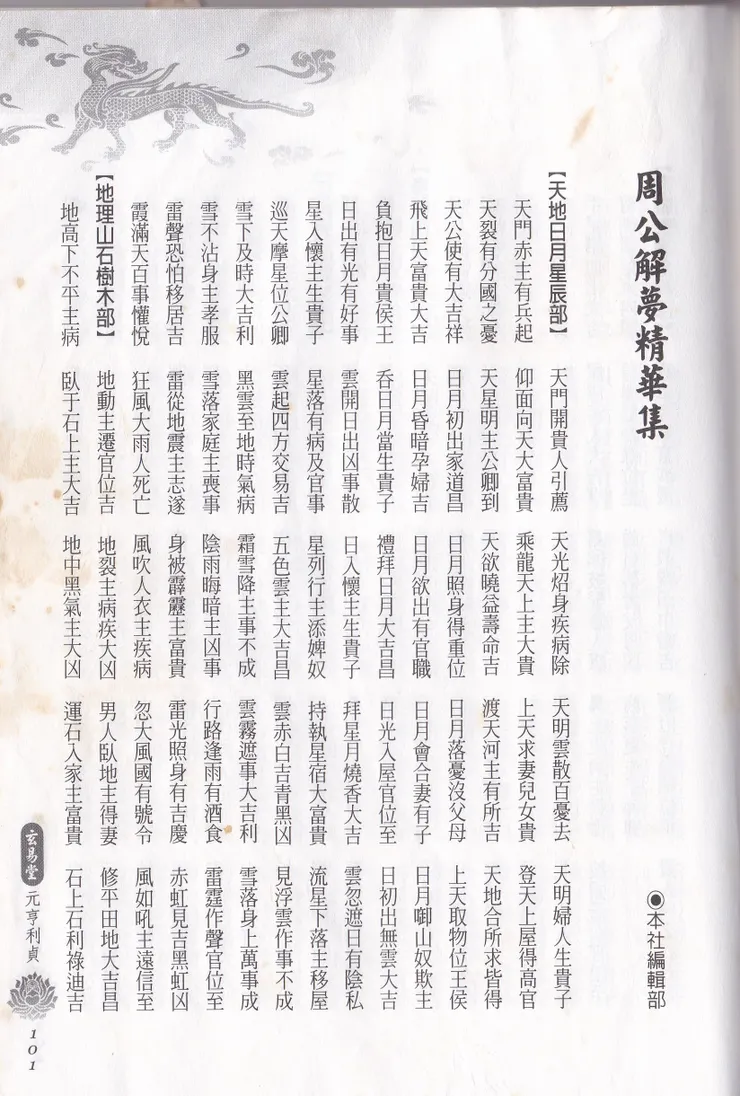 周公解夢精華集
◉本社編輯部
【天地日月星辰部】
天門開貴人引薦 天光炤身疾病除 天明雲散百憂去 天明婦人生貴子
天門赤主有兵起 仰面向天大富貴 乘龍天上主大貴 上天求妻兒女貴 登天上屋得高官
天裂有分國之憂 天星明主公卿到 天欲曉益壽命吉 渡天河主有所吉 天地合所求皆得
天公使有大吉祥 日月初出家道昌 日月照身得重位 日月落憂沒父母 上天取物位王侯
飛上天富貴大吉 日月昏暗孕婦吉 日月欲出有官職 日月會合妻有子 日月啣山奴欺主
負抱日月貴侯王 吞日月當生貴子 禮拜日月大吉昌 日光入屋官位至 日初出無雲大吉
日出有光有好事 雲開日出凶事散 日入懷主生貴子 拜星月燒香大吉 雲忽遮日有陰私
星入懷主生貴子 星落有病及官事 星列行主添婢奴 持執星宿大富貴 流星下落主移屋
巡天摩星位公卿 雲起四方交易吉 五色雲主大吉昌 雲赤白吉青黑凶 見浮雲作事不成
雪下及時大吉利 黑雲至地時氣病 霜雪降主事不成 雲霧遮事大吉利 雪落身上萬事成
雪不沾身主孝服 雪落家庭主喪事 陰雨晦暗主凶事 行路逢雨有酒食 雷霆作聲官位至
雷聲恐怕移居吉 雷從地震主志遂 身被霹靂主富貴 雷光照身有吉慶 赤虹見吉黑虹凶
霞滿天百事懽悅 狂風大雨人死亡 風吹人衣主疾病 忽大風國有號令 風如吼主遠信至
【地理山石樹木部】
地動主遷官位吉 地裂主病疾大凶 男人臥地主得妻 修平田地大吉昌
地高下不平主病 臥于石上主大吉 地中黑氣主大凶 運石入家主富貴 石上石利祿迪吉
玄易堂
元亨利貞
101